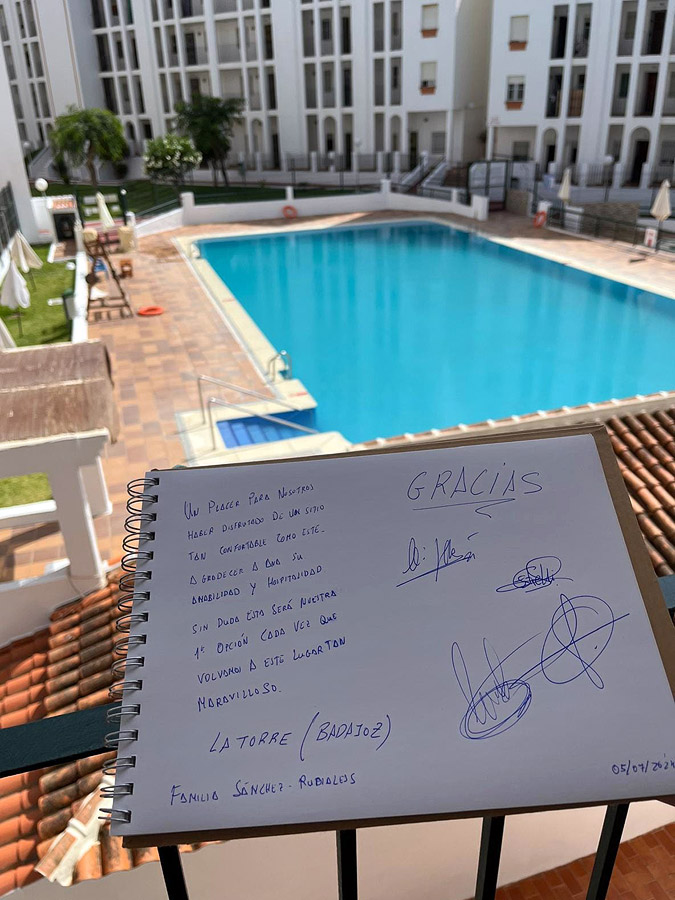 Un Placer Para Nosotros
haber disfrutado de un sitio
tan confortable como este.
Agradecer a Ana su
amabilidad y hospitalidad
sin duda esta será nuestra
1ª opción cada vez que
volvamos a este lugar tan
maravilloso.
La Torre (Badajoz)
Familia Sánchez-Rubiales
GRACIAS
05/07/2024